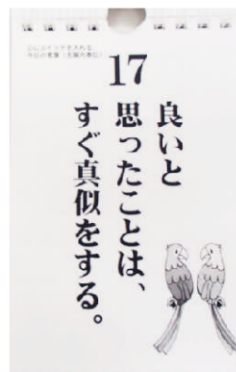 17
良いと
思ったことは、
すぐ真似をする。